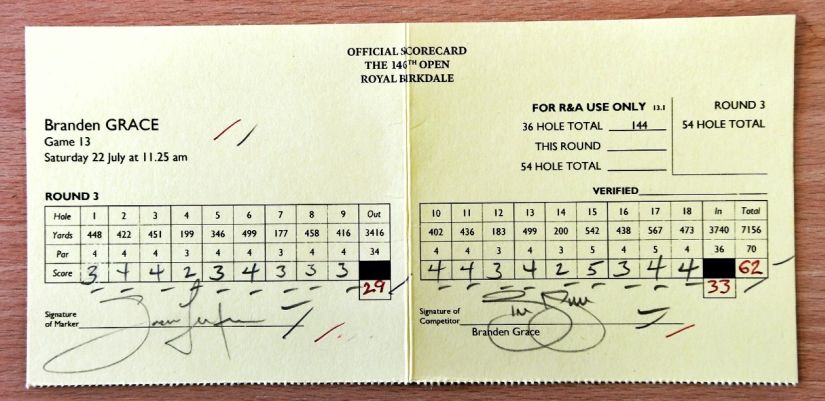 OFFICIAL SCORECARD
THE 146TH OPEN
ROYAL BIRKDALE
Branden GRACE
Game 13
Saturday 22 July at 11.25 am
FOR R&A USE ONLY 13.1
36 HOLE TOTAL 144
THIS ROUND
54 HOLE TOTAL
ROUND 3
54 HOLE TOTAL
VERIFIED
ROUND 3
Hole 1 2 3 4 5 6 7 8 9 Out
Yards 448 422 451 199 346 499 177 458 416 3416
Par 4 4 4 3 4 4 3 4 4 34
Score 3 4 4 2 3 4 3 3 3
29
10 11 12 13 14 15 16 17 18 In Total
402 436 183 499 200 542 438 567 473 3740 7156
4 4 3 4 3 5 4 5 4 36 70
4 4 3 4 2 5 3 4 4 62
33
Signature
of Marker
Signature of
Competitor
Branden Grace